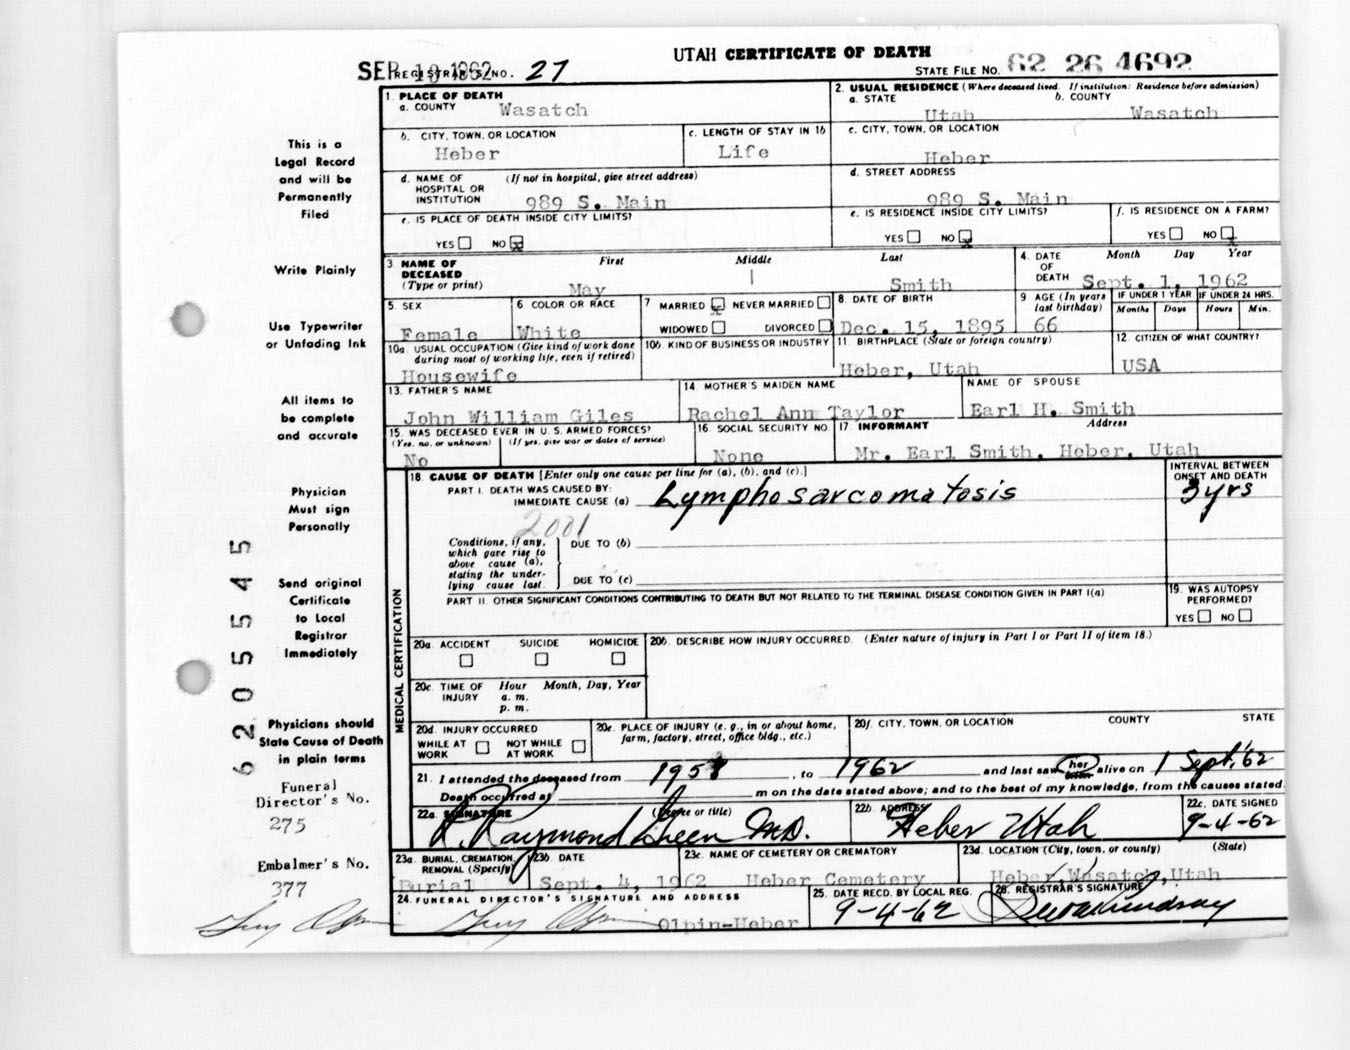 UTAH CERTIFICATE OF DEATH
SEP 10 1962 REGISTRAR'S NO. 27
STATE FILE NO. 62 26 4692
This is a
Legal Record
and will be
Permanently
Filed
Write Plainly
Use Typewriter
or Unfading Ink
All items to
be complete
and accurate
Physician
Must sign
Personally
Send original
Certificate
to Local
Registrar
Immediately
Physicians should
State Cause of Death
in plain terms
Funeral
Director's No.
275
Embalmer's No.
377
6205545
1. PLACE OF DEATH
a. COUNTY Wasatch
2. USUAL RESIDENCE (Where deceased lived. If institution: Residence before admission)
a. STATE Utah b. COUNTY Wasatch
b. CITY, TOWN, OR LOCATION Heber
c. LENGTH OF STAY IN 1b Life
c. CITY, TOWN, OR LOCATION
Heber
d. NAME OF HOSPITAL OR INSTITUTION (If not in hospital, give street address)
989 S. Main
d. STREET ADDRESS
989 S. Main
e. IS PLACE OF DEATH INSIDE CITY LIMITS?
YES NO X
e. IS RESIDENCE INSIDE CITY LIMITS?
YES NO X
f. IS RESIDENCE ON A FARM?
YES NO X
3 NAME OF DECEASED (Type or print) First Middle Last
May Smith
4. DATE OF DEATH Month Day Year
Sept. 1, 1962
5. SEX
Female
6 COLOR OR RACE
White
7 MARRIED X NEVER MARRIED
WIDOWED DIVORCED
8. DATE OF BIRTH
Dec. 15, 1895
9 AGE (In years last birthday)
66
IF UNDER 1 YEAR IF UNDER 24 HRS.
Months Days Hours Min.
10a. USUAL OCCUPATION (Give kind of work done during most of working life, even if retired)
Housewife
10b. KIND OF BUSINESS OR INDUSTRY
11. BIRTHPLACE (State or foreign country)
Heber, Utah
12. CITIZEN OF WHAT COUNTRY?
USA
13. FATHER'S NAME
John William Giles
14. MOTHER'S MAIDEN NAME
Rachel Ann Taylor
NAME OF SPOUSE
Earl H. Smith
15. WAS DECEASED EVER IN U.S. ARMED FORCES?
(Yes, no, or unknown) (If yes, give war or dates of service)
No
16. SOCIAL SECURITY NO.
None
17 INFORMANT Address
Mr. Earl Smith, Heber, Utah
18. CAUSE OF DEATH [Enter only one cause per line for (a), (b), and (c).]
INTERVAL BETWEEN ONSET AND DEATH
PART I. DEATH WAS CAUSED BY:
IMMEDIATE CAUSE (a) Lymphosarcomatosis 3 yrs
2001
Conditions, if any, which gave rise to above cause (a), stating the underlying cause last.
DUE TO (b)
DUE TO (c)
PART II. OTHER SIGNIFICANT CONDITIONS CONTRIBUTING TO DEATH BUT NOT RELATED TO THE TERMINAL DISEASE CONDITION GIVEN IN PART I(a)
19. WAS AUTOPSY PERFORMED?
YES NO
MEDICAL CERTIFICATION
20a. ACCIDENT SUICIDE HOMICIDE
20b. DESCRIBE HOW INJURY OCCURRED. (Enter nature of injury in Part I or Part II of item 18.)
20c. TIME OF INJURY Hour Month, Day, Year
a. m.
p. m.
20d. INJURY OCCURRED
WHILE AT WORK NOT WHILE AT WORK
20e. PLACE OF INJURY (e. g., in or about home, farm, factory, street, office bldg., etc.)
20f. CITY, TOWN, OR LOCATION COUNTY STATE
21. I attended the deceased from 1958, to 1962 and last saw her alive on 1 Sept. '62
Death occurred at m on the date stated above; and to the best of my knowledge, from the causes stated.
22a. SIGNATURE (Degree or title)
R. Raymond Green M.D.
22b. ADDRESS
Heber Utah
22c. DATE SIGNED
9-4-62
23a. BURIAL, CREMATION, REMOVAL (Specify)
Burial
23b. DATE
Sept. 4, 1962
23c. NAME OF CEMETERY OR CREMATORY
Heber Cemetery
23d. LOCATION (City, town, or county) (State)
Heber, Wasatch, Utah
24. FUNERAL DIRECTOR'S SIGNATURE AND ADDRESS
Olpin-Heber
25. DATE RECD. BY LOCAL REG.
9-4-62
26. REGISTRAR'S SIGNATURE